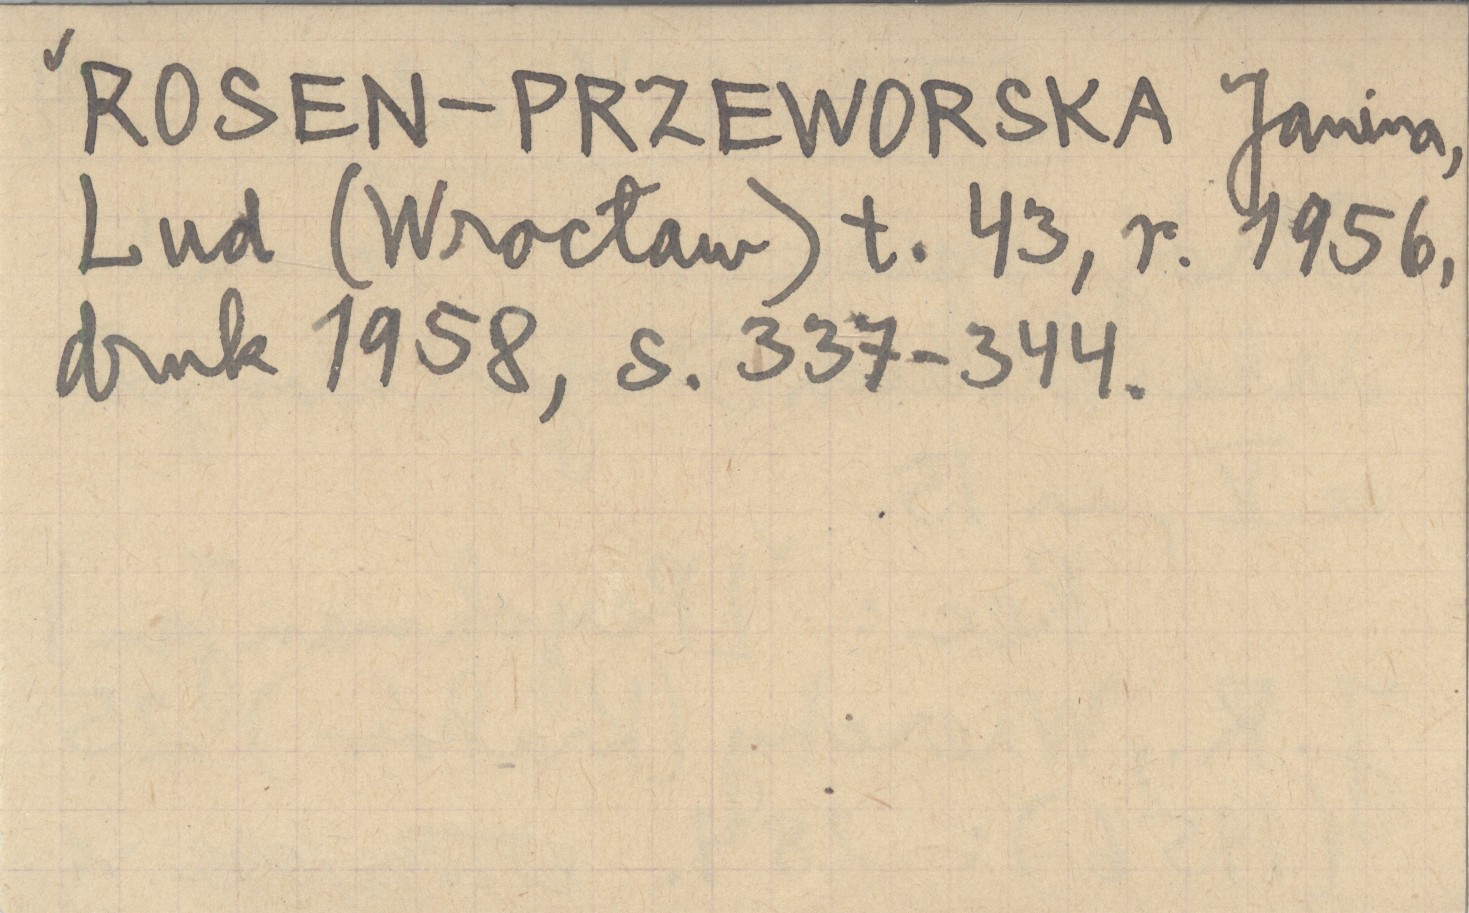 ✓ROSEN-PRZEWORSKA Janina,
Lud (Wrocław) t. 43, r. 1956,
druk 1958, s. 337-344.